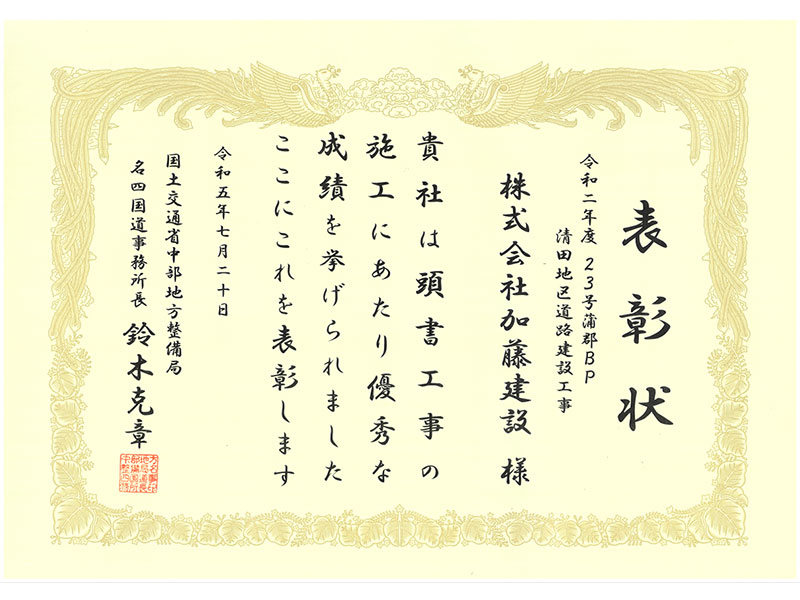 表彰状
令和二年度 23号蒲郡BP
清田地区道路建設工事
株式会社加藤建設 様
貴社は頭書工事の
施工にあたり優秀な
成績を挙げられました
ここにこれを表彰します
令和五年七月二十日
国土交通省中部地方整備局
名四国道事務所長 鈴木克章